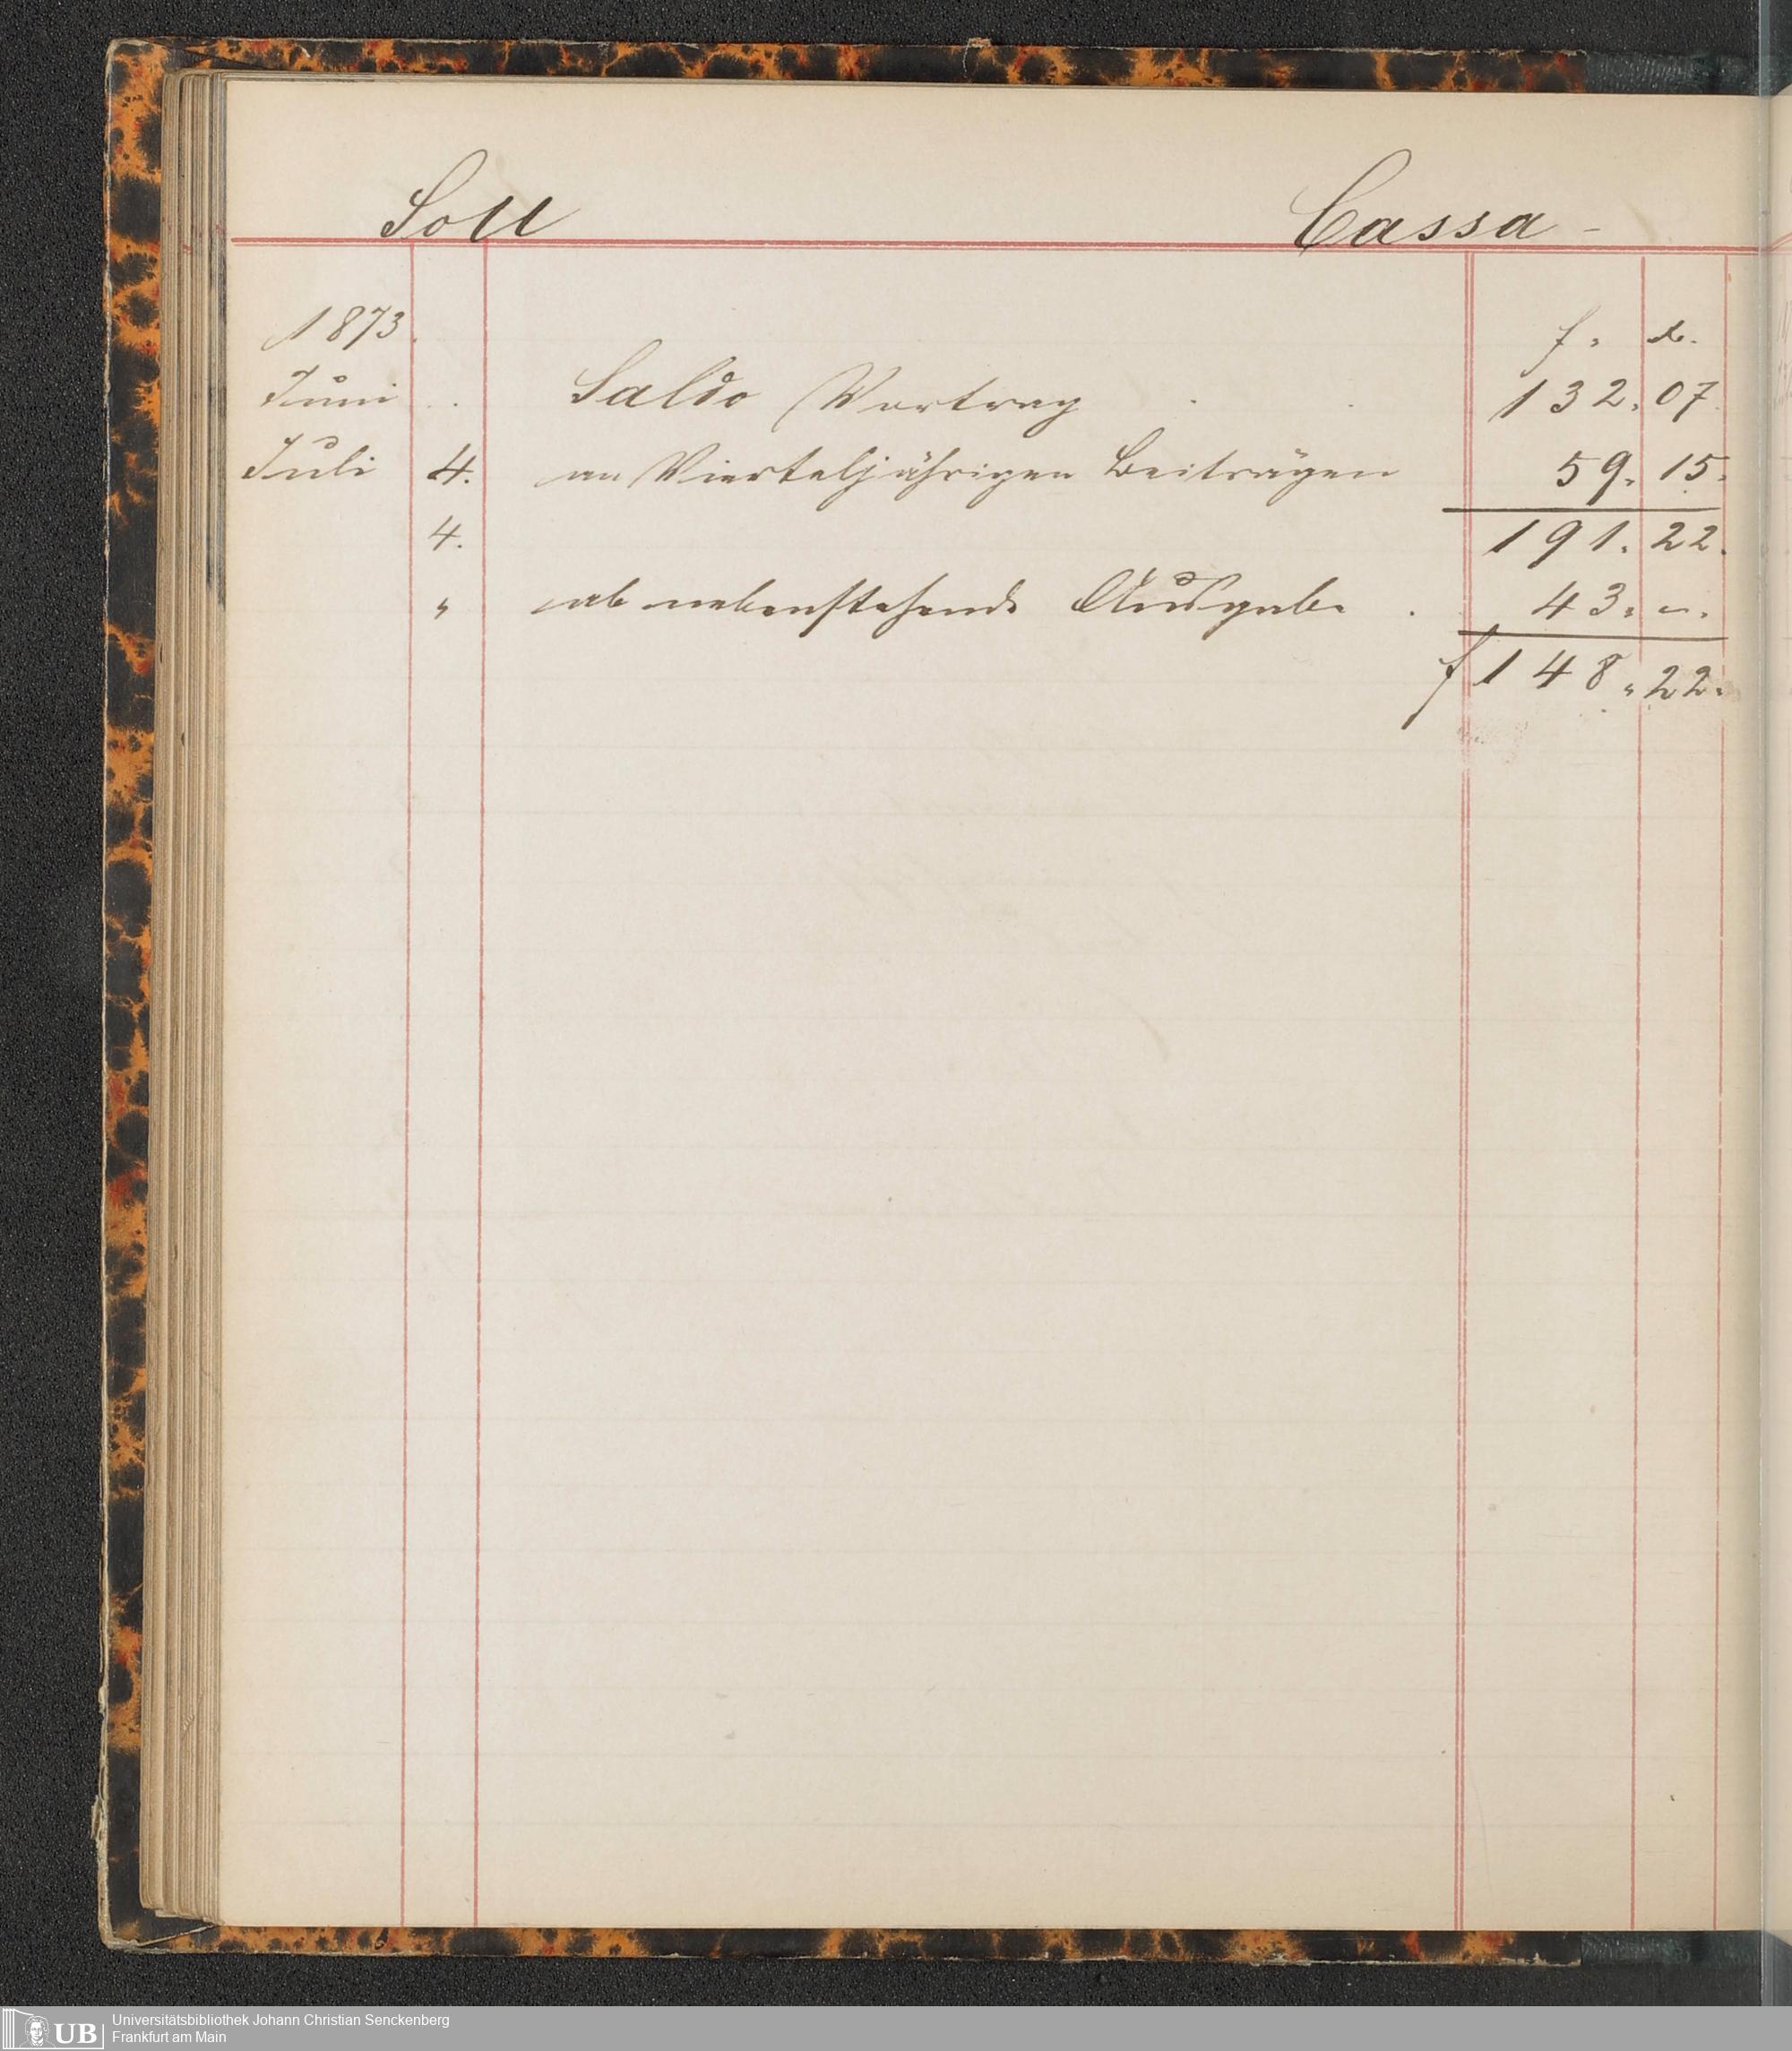 Soll Cassa -
1873. f. x.
Juni . Saldo Vortrag . . 132. 07.
Juli 4. an Vierteljährigen Beiträgen 59. 15.
4. 191. 22.
" ab nebenstehende Ausgabe . 43. -.
f 148. 22.
UB Universitätsbibliothek Johann Christian Senckenberg
Frankfurt am Main